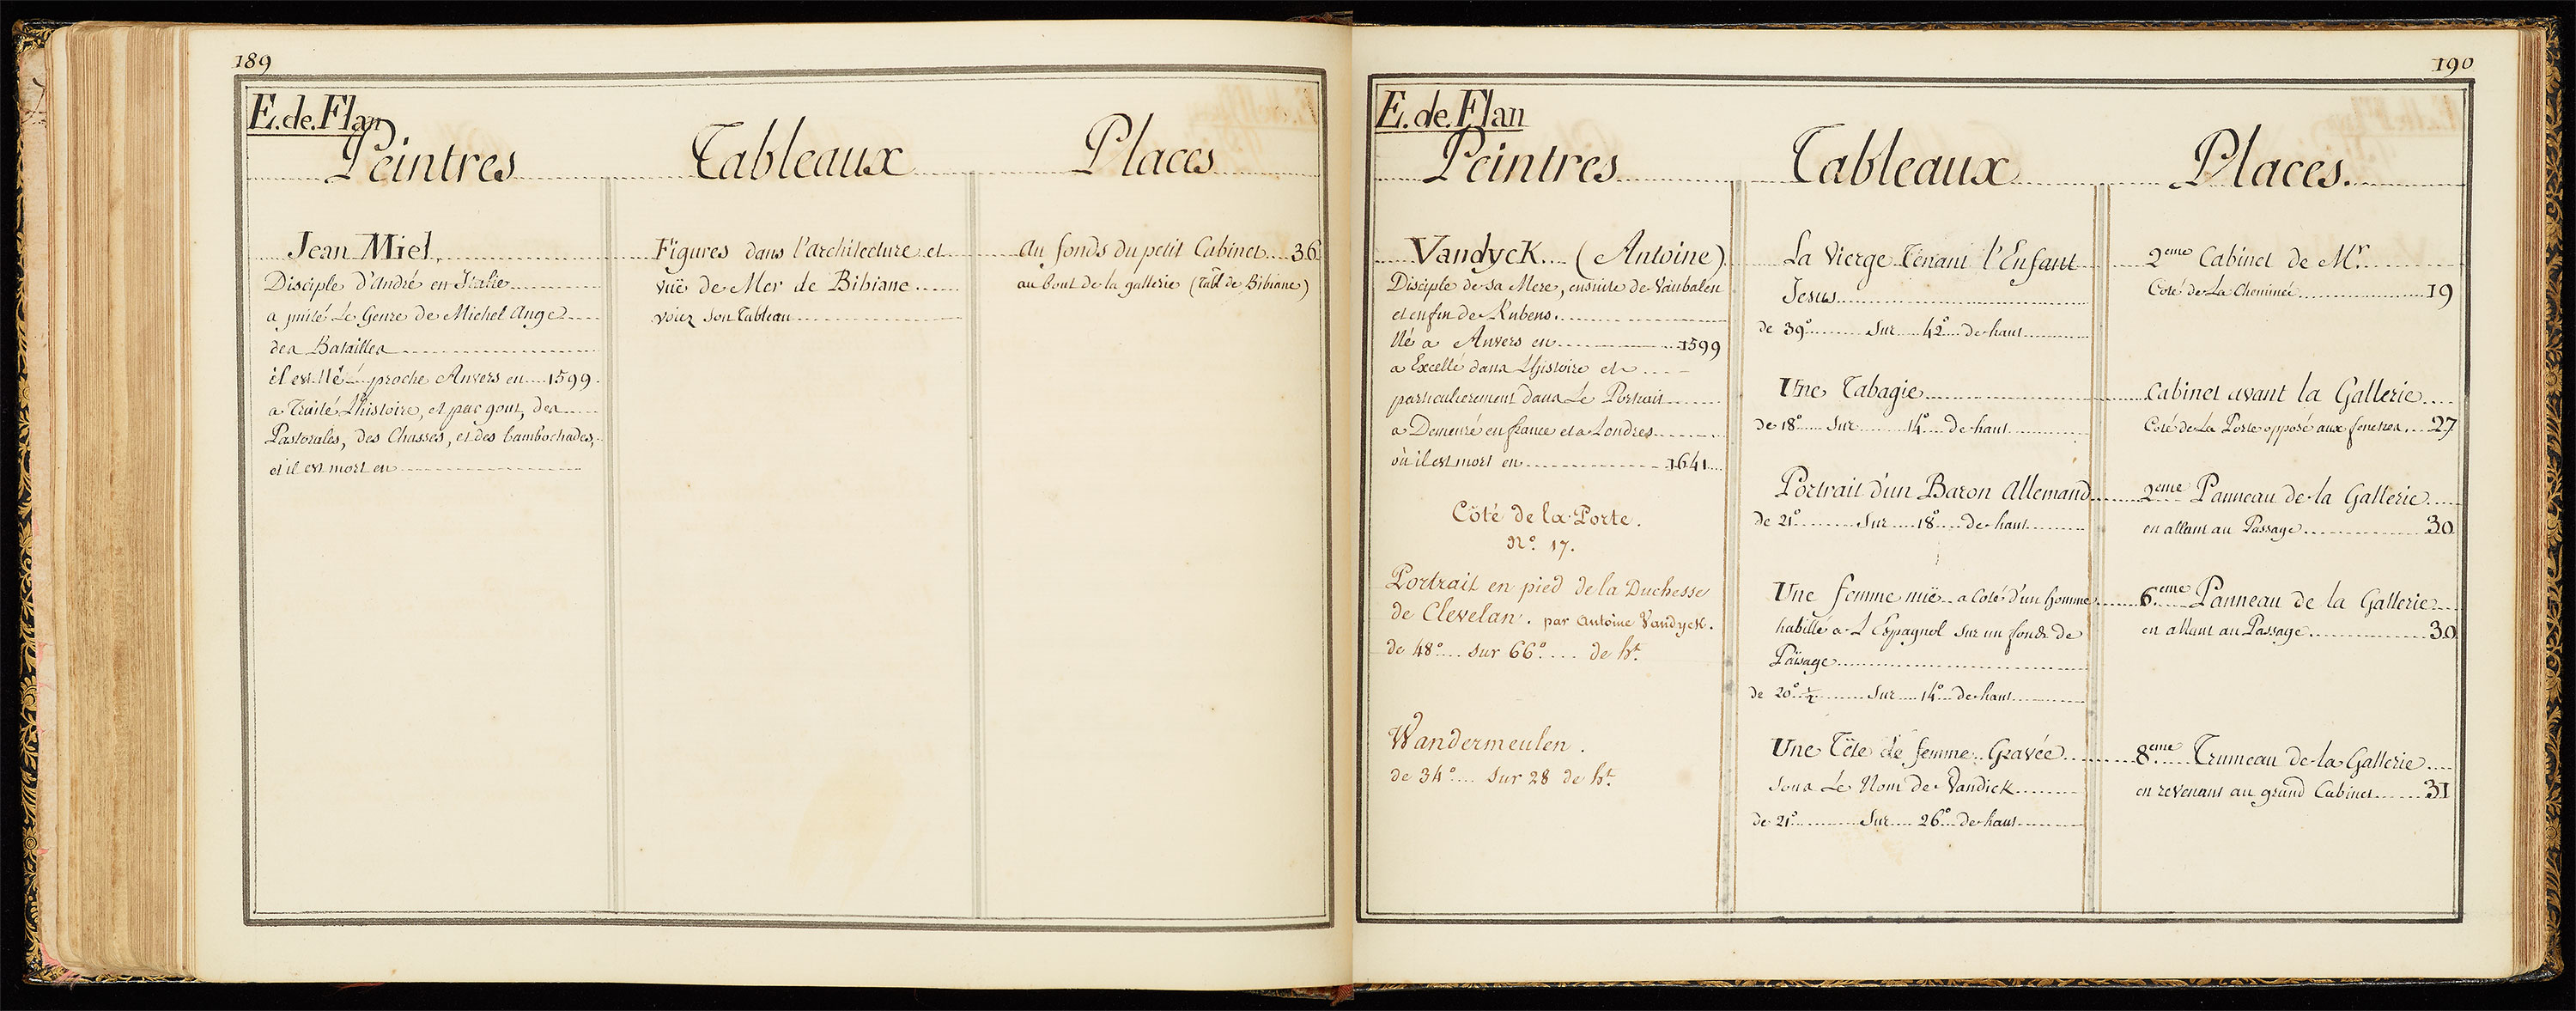 189
E. de. Flan
Peintres Tableaux Places
Jean Miel
Disciple d'André en Italie
a jmité Le Genre de Michel Ange
des Batailles
il est Né proche Anvers en 1599
a Traité L'histoire, et par gout, des
Pastorales, des Chasses, et des bambochades,
et il est mort en
Figures dans l'architecture et
vuë de Mer de Bibiane
voiez son Tableau
Au fonds du petit Cabinet 36
au bout de la gallerie (Tabl de Bibiane)
190
E. de. Flan
Peintres Tableaux Places.
Vandyck (Antoine)
Disciple de sa Mere, ensuite de Vanbalen
et enfin de Rubens.
Né a Anvers en 1599
a Excellé dans L'histoire et
particulierement dans Le Portrait
a Demeuré en france et a Londres
où il est mort en 1641
Côté de la Porte.
N.º 17.
Portrait en pied de la Duchesse
de Clevelan. par Antoine Vandyck.
de 48º sur 66º de h.t
Wandermeulen.
de 34º sur 28 de h.t
La Vierge Tenant l'Enfant
Jesus
de 39º Sur 42º de haut
Une Tabagie
de 18º Sur 14º de haut
Portrait d'un Baron Allemand
de 21º Sur 18º de haut
Une femme nuë a coté d'un homme
habillé a L'Espagnol sur un fonds de
Païsage
de 20º ½ Sur 14º de haut
Une Tête de femme Gravée
sous Le Nom de Vandick
de 21º Sur 26º de haut
2eme Cabinet de Mr.
Coté de La Cheminée 19
Cabinet avant la Gallerie
Coté de La Porte opposé aux fenetres 27
2eme Panneau de la Gallerie
en allant au Passage 30
6eme Panneau de la Gallerie
en allant au Passage 30
8eme Trumeau de la Gallerie
en revenant au grand Cabinet 31